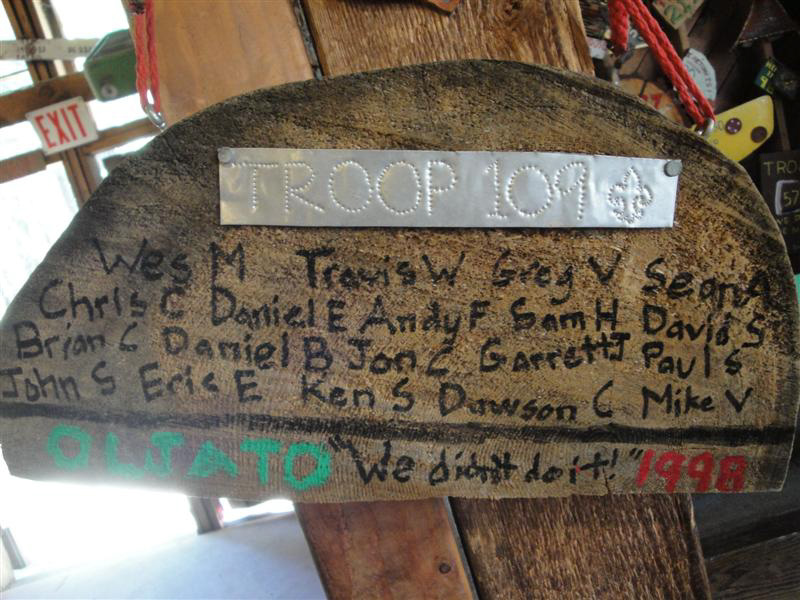 EXIT
TROOP 109
Wes M Travis W Greg V Sean A
Chris C Daniel E Andy F Sam H David S
Brian C Daniel B Jon C Garrett J Paul S
John S Eric E Ken S Dawson C Mike V
OLJATO "We didn't do it!" 1998
TRO
57